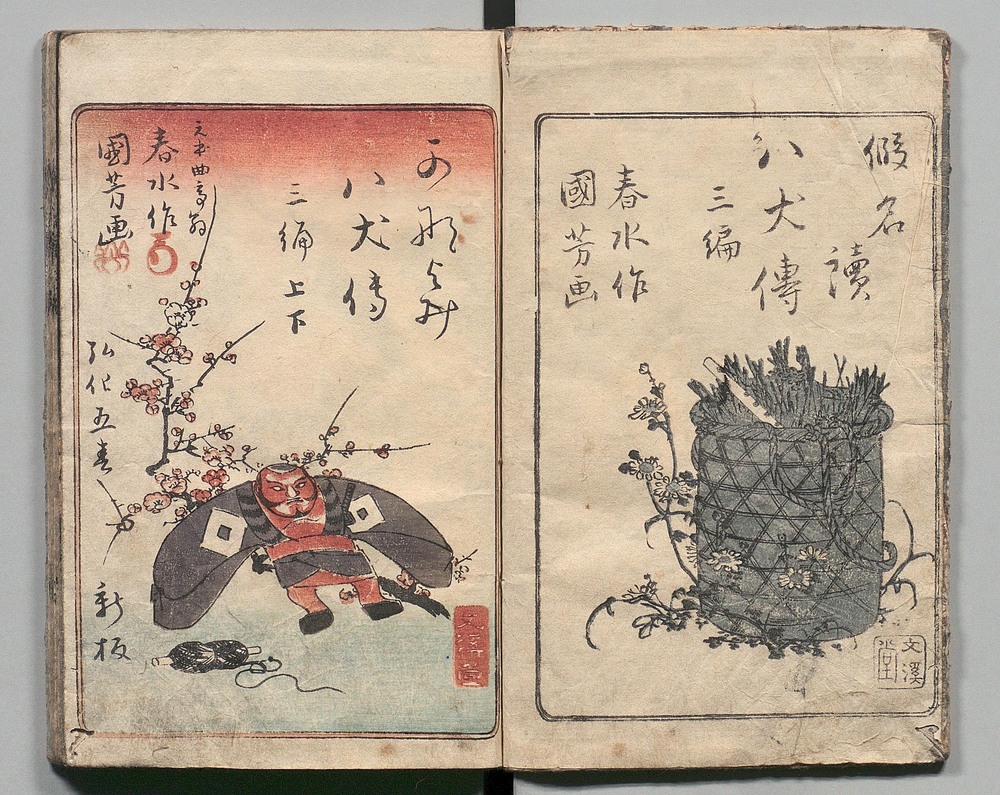 假名
讀
八犬傳
三編
春水作
國芳画
文溪
堂
可那よみ
八犬傳
三編上下
元本曲亭翁
春水作
國芳画
弘化五春
新板
文溪堂